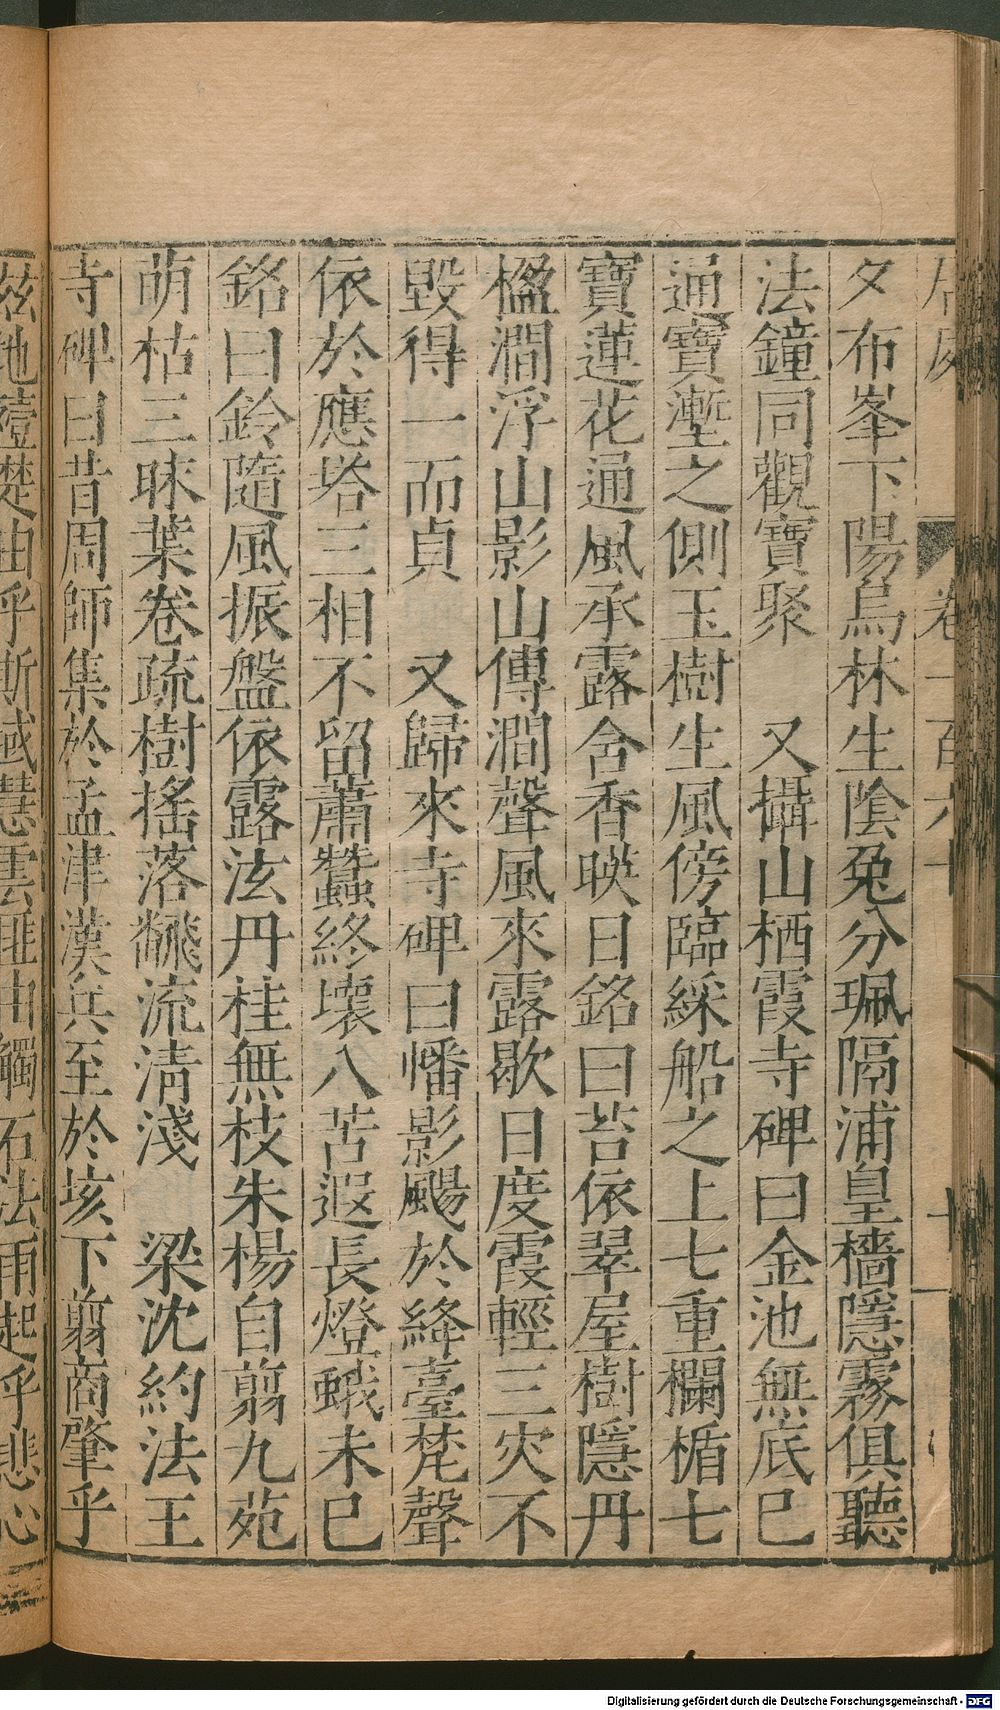 夕布峯下陽烏林生陰兔分珮隔浦皇檣隱霧俱聽
法鐘同觀寶聚　又攝山栖霞寺碑曰金池無底已
通寶壍之側玉樹生風傍臨綵船之上七重欄楯七
寶蓮花通風承露含香映日銘曰苔依翠屋樹隱丹
楹澗浮山影山傳澗聲風來露歇日度霞輕三灾不
毀得一而貞　又歸來寺碑曰幡影颺於絳臺梵聲
依於應塔三相不留蕭蠶終壞八苦遐長燈蛾未已
銘曰鈴隨風振盤依露泫丹桂無枝朱楊自翦九苑
萌枯三昧葉卷疏樹搖落翻流清淺　梁沈約法王
寺碑曰昔周師集於孟津漢兵至於垓下翦商肇乎
茲地殪楚由乎斯域慧雲匪由觸石法雨起乎悲心
Digitalisierung gefördert durch die Deutsche Forschungsgemeinschaft - DFG